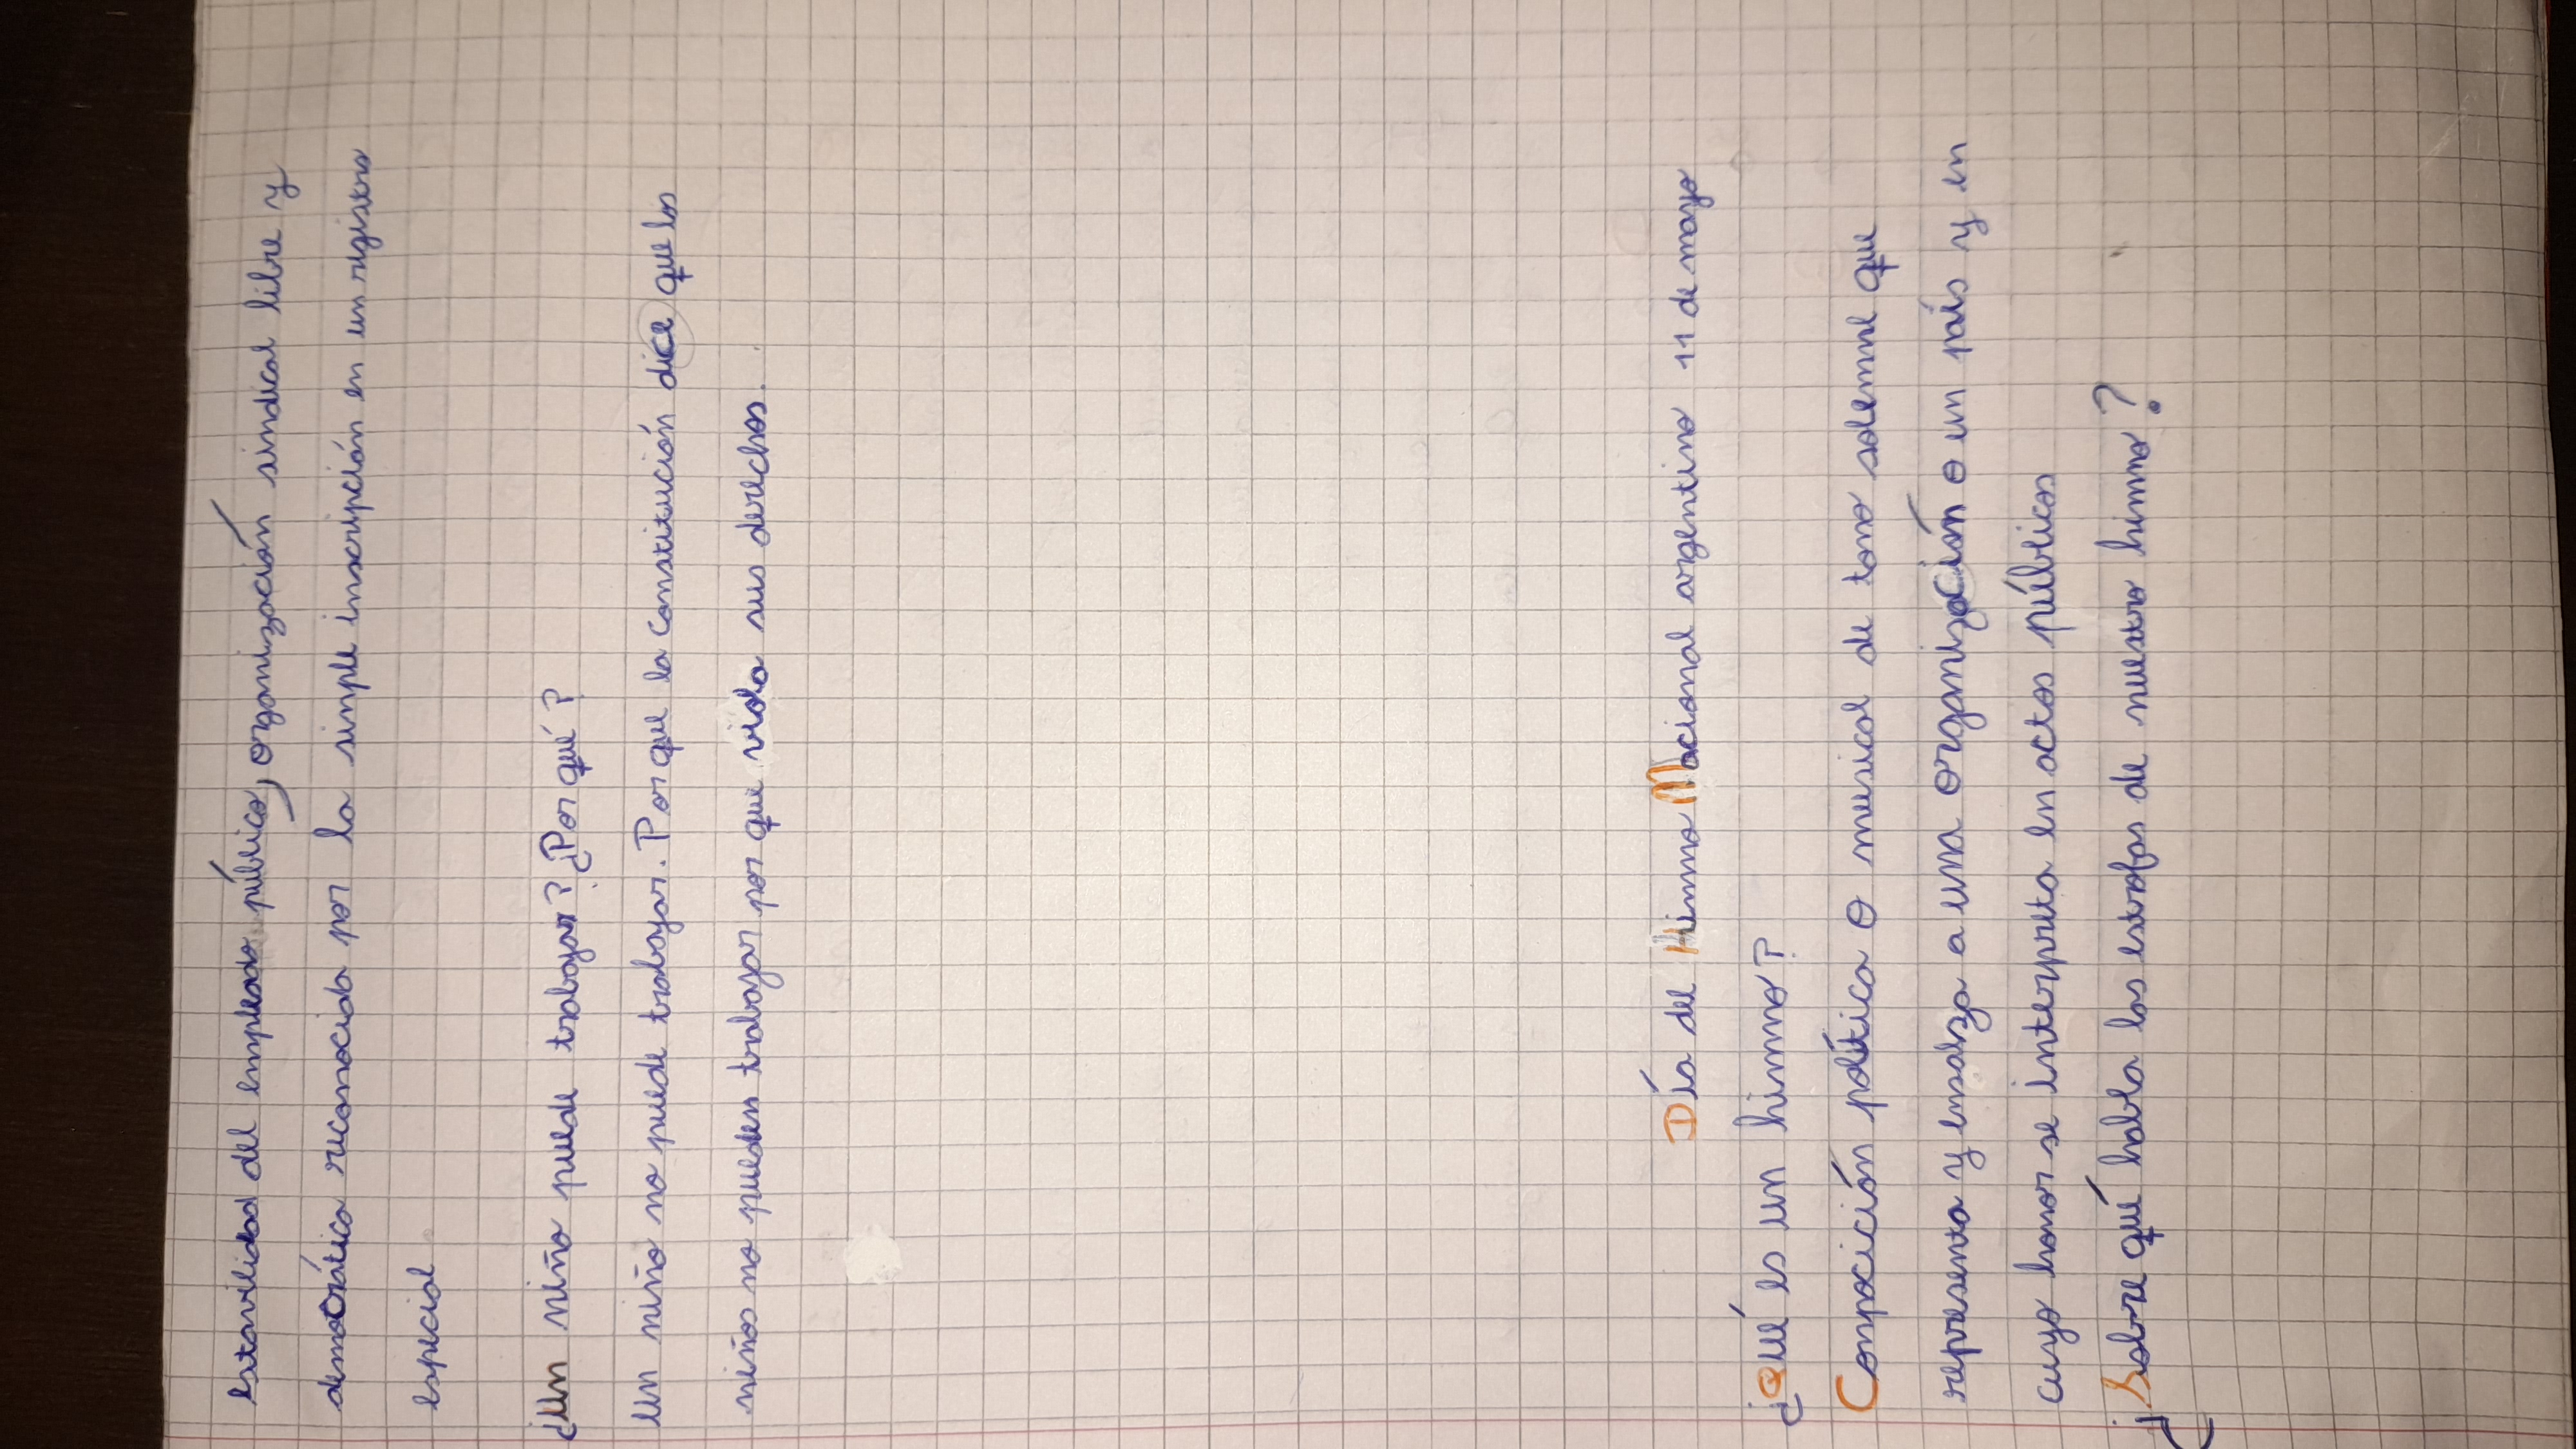 estavilidad del empleado público, organización sindical libre y
democrática reconocida por la simple inscripción en un registro
especial
¿Un niño puede trabajar? ¿Por qué?
Un niño no puede trabajar. Por que la constitución dice que los
niños no pueden trabajar por que viola sus derechos.
Día del Himno Nacional argentino 11 de mayo
¿Qué es un himno?
Compocición política o musical de tono solemne que
representa y ensalza a una organización o un país y en
cuyo honor se interpreta en actos públicos
¿Sobre qué habla las estrofas de nuestro himno?